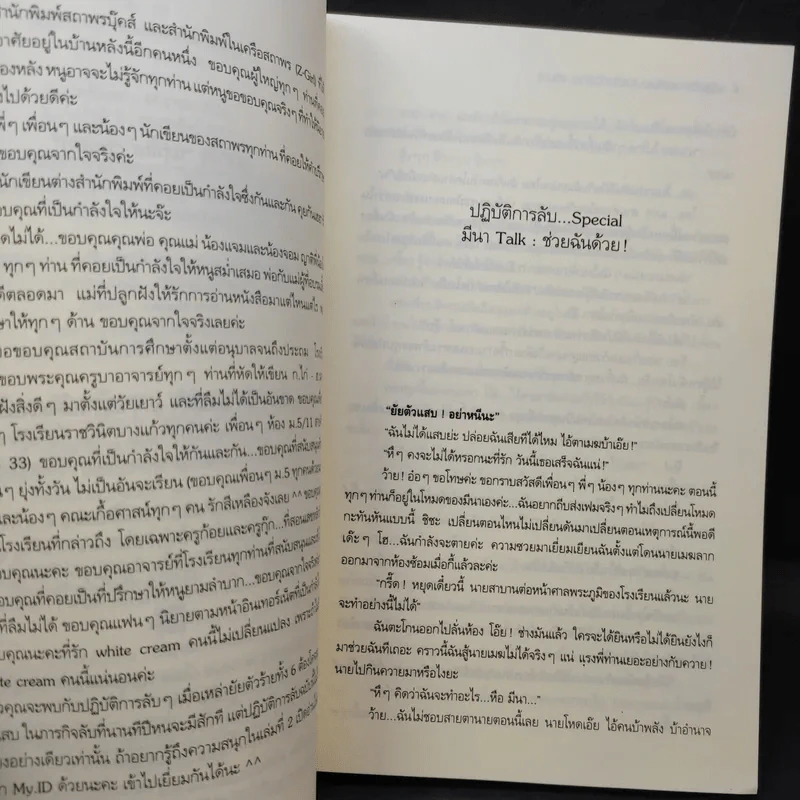 สำนักพิมพ์สถาพรบุ๊คส์ และสำนักพิมพ์ในเครือสถาพร (Z-Girl)
อาศัยอยู่ในบ้านหลังนี้อีกคนหนึ่ง ขอบคุณผู้ใหญ่ทุกๆ ท่าน
องหลัง หนูอาจจะไม่รู้จักทุกท่าน แต่หนูขอขอบคุณจริงๆ ที่ทำให้
งไปด้วยดีค่ะ
พี่ๆ เพื่อนๆ และน้องๆ นักเขียนของสถาพรทุกท่าน ที่คอยให้คำปรึกษา
ขอบคุณจากใจจริงค่ะ
นักเขียนต่างสำนักพิมพ์ที่คอยเป็นกำลังใจซึ่งกันและกัน
อบคุณที่เป็นกำลังใจให้นะจ๊ะ
ดไม่ได้...ขอบคุณคุณพ่อ คุณแม่ น้องแจมและน้องจอม
ทุกๆ ท่าน ที่คอยเป็นกำลังใจให้หนูสม่ำเสมอ พ่อกับแม่ผู้ที่
ดีตลอดมา แม่ที่ปลูกฝังให้รักการอ่านหนังสือมาแต่ไหนแต่ไร
ษาให้ทุกๆ ด้าน ขอบคุณจากใจจริงเลยค่ะ
อขอบคุณสถาบันการศึกษาตั้งแต่อนุบาลจนถึงประถม
ขอบพระคุณครูบาอาจารย์ทุกๆ ท่านที่หัดให้เขียน ก.ไก่ - ฮ.
ฝังสิ่งดีๆ มาตั้งแต่วัยเยาว์ และที่ลืมไม่ได้เป็นอันขาด ขอบคุณ
ๆ โรงเรียนราชวินิตบางแก้วทุกคนค่ะ เพื่อนๆ ห้อง ม.5/11
33) ขอบคุณที่เป็นกำลังใจให้กันและกัน...ขอบคุณที่สนับสนุน
นๆ ยุ่งทั้งวัน ไม่เป็นอันจะเรียน (ขอบคุณเพื่อนๆ ม.5 ทุกคนด้วย
และน้องๆ คณะเกื้อศาสน์ทุกๆ คน รักสีเหลืองจังเลย ^^
โรงเรียนที่กล่าวถึง โดยเฉพาะครูก้อยและครูกุ๊ก...ที่สอน
คุณนะคะ ขอบคุณอาจารย์ที่โรงเรียนทุกท่านที่สนับสนุนและ
อบคุณที่คอยเป็นที่ปรึกษาให้หนูยามลำบาก...ขอบคุณจากใจจริง
ที่ลืมไม่ได้ ขอบคุณแฟนๆ นิยายตามหน้าอินเทอร์เน็ตที่เป็น
คุณนะคะที่รัก white cream คนนี้ไม่เปลี่ยนแปลง เพราะ
te cream คนนี้แน่นอนค่ะ
วคุณจะพบกับปฏิบัติการลับๆ เมื่อเหล่ายัยตัวร้ายทั้ง 6 ต้อง
สบ ในภารกิจลับที่นานทีปีหนจะมีสักที แต่ปฏิบัติการลับ
ยงอย่างเดียวเท่านั้น ถ้าอยากรู้ถึงความสนุกในเล่มที่ 2
ก My.ID ด้วยนะคะ เข้าไปเยี่ยมกันได้นะ ^^
ปฏิบัติการลับ...Special
มีนา Talk : ช่วยฉันด้วย!
“ยัยตัวแสบ! อย่าหนีนะ”
“ฉันไม่ได้แสบย่ะ ปล่อยฉันเสียทีได้ไหม ไอ้ตาเมฆบ้าเอ๊ย!”
“หึๆ คงจะไม่ได้หรอกนะที่รัก วันนี้เธอเสร็จฉันแน่!”
ว้าย! อ๋อๆ ขอโทษค่ะ ขอกราบสวัสดีเพื่อนๆ พี่ๆ น้องๆ ทุกท่านนะคะ ตอนนี้
ทุกๆ ท่านก็อยู่ในโหมดของมีนาเองค่ะ...ฉันอยากถีบส่งเฟมจริงๆ ทำไมถึงเปลี่ยนโหมด
กะทันหันแบบนี้ ชิชะ เปลี่ยนตอนไหนไม่เปลี่ยนดันมาเปลี่ยนตอนเหตุการณ์นี้พอดี
เด๊ะๆ โฮ...ฉันกำลังจะตายค่ะ ความซวยมาเยี่ยมเยียนฉันตั้งแต่โดนนายเมฆลาก
ออกมาจากห้องซ้อมเมื่อกี้แล้วละค่ะ
“กรี๊ด! หยุดเดี๋ยวนี้ นายสาบานต่อหน้าศาลพระภูมิของโรงเรียนแล้วนะ นาย
จะทำอย่างนี้ไม่ได้”
ฉันตะโกนออกไปลั่นห้อง โอ๊ย! ช่างมันแล้ว ใครจะได้ยินหรือไม่ได้ยินยังไงก็
มาช่วยฉันทีเถอะ คราวนี้ฉันสู้นายเมฆไม่ได้จริงๆ แน่ แรงพี่ท่านเยอะอย่างกับควาย!
นายไปกินควายมาหรือไงยะ
“หึๆ คิดว่าฉันจะทำอะไร...หือ มีนา...”
ว้าย...ฉันไม่ชอบสายตานายตอนนี้เลย นายโหดเอ๊ย ไอ้คนบ้าพลัง บ้าอำนาจ